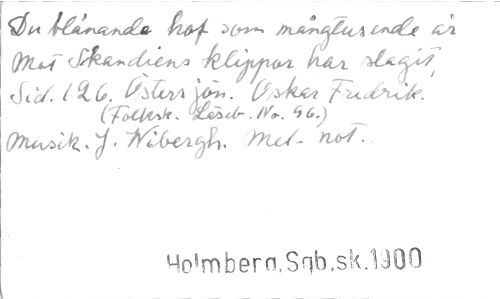 Du blånande haf som mångtusende år
Mot Skandiens klippor har slagit,
Sid. 126. Östersjön. Oskar Fredrik.
(Folksk. Läseb. No. 96.)
Musik. J. Wibergh. Mel. not.
Holmberg, Sgb,sk.1900